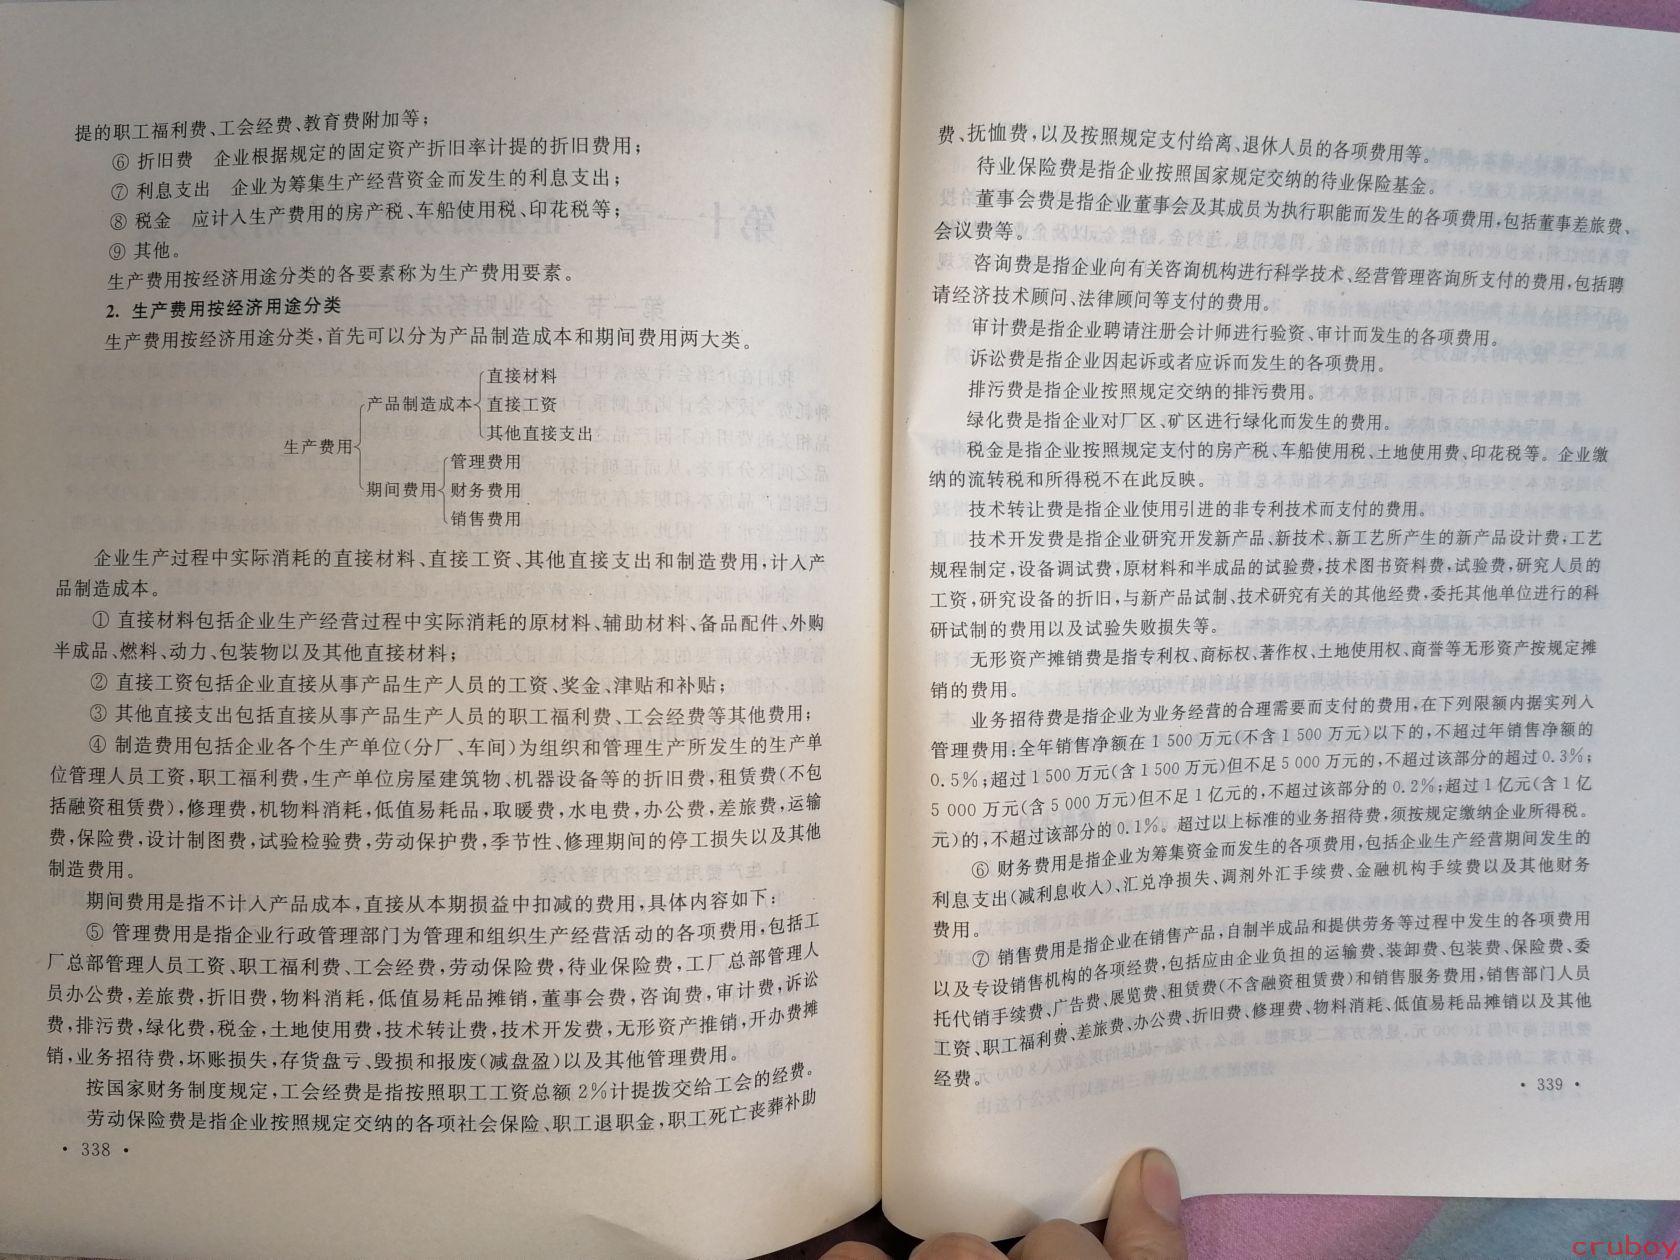 提的职工福利费、工会经费、教育费附加等；
⑥ 折旧费　企业根据规定的固定资产折旧率计提的折旧费用；
⑦ 利息支出　企业为筹集生产经营资金而发生的利息支出；
⑧ 税金　应计入生产费用的房产税、车船使用税、印花税等；
⑨ 其他。
生产费用按经济用途分类的各要素称为生产费用要素。
2. 生产费用按经济用途分类
生产费用按经济用途分类，首先可以分为产品制造成本和期间费用两大类。
直接材料
产品制造成本 直接工资
其他直接支出
生产费用
管理费用
期间费用 财务费用
销售费用
企业生产过程中实际消耗的直接材料、直接工资、其他直接支出和制造费用，计入产
品制造成本。
① 直接材料包括企业生产经营过程中实际消耗的原材料、辅助材料、备品配件、外购
半成品、燃料、动力、包装物以及其他直接材料；
② 直接工资包括企业直接从事产品生产人员的工资、奖金、津贴和补贴；
③ 其他直接支出包括直接从事产品生产人员的职工福利费、工会经费等其他费用；
④ 制造费用包括企业各个生产单位（分厂、车间）为组织和管理生产所发生的生产单
位管理人员工资，职工福利费，生产单位房屋建筑物、机器设备等的折旧费，租赁费（不包
括融资租赁费），修理费，机物料消耗，低值易耗品，取暖费，水电费，办公费，差旅费，运输
费，保险费，设计制图费，试验检验费，劳动保护费，季节性、修理期间的停工损失以及其他
制造费用。
期间费用是指不计入产品成本，直接从本期损益中扣减的费用，具体内容如下：
⑤ 管理费用是指企业行政管理部门为管理和组织生产经营活动的各项费用，包括工
厂总部管理人员工资、职工福利费、工会经费，劳动保险费，待业保险费，工厂总部管理人
员办公费，差旅费，折旧费，物料消耗，低值易耗品摊销，董事会费，咨询费，审计费，诉讼
费，排污费，绿化费，税金，土地使用费，技术转让费，技术开发费，无形资产推销，开办费摊
销，业务招待费，坏账损失，存货盘亏、毁损和报废（减盘盈）以及其他管理费用。
按国家财务制度规定，工会经费是指按照职工工资总额 2%计提拨交给工会的经费。
劳动保险费是指企业按照规定交纳的各项社会保险、职工退职金，职工死亡丧葬补助
· 338 ·
费、抚恤费，以及按照规定支付给离、退休人员的各项费用等。
待业保险费是指企业按照国家规定交纳的待业保险基金。
董事会费是指企业董事会及其成员为执行职能而发生的各项费用，包括董事差旅费、
会议费等。
咨询费是指企业向有关咨询机构进行科学技术、经营管理咨询所支付的费用，包括聘
请经济技术顾问、法律顾问等支付的费用。
审计费是指企业聘请注册会计师进行验资、审计而发生的各项费用。
诉讼费是指企业因起诉或者应诉而发生的各项费用。
排污费是指企业按照规定交纳的排污费用。
绿化费是指企业对厂区、矿区进行绿化而发生的费用。
税金是指企业按照规定支付的房产税、车船使用税、土地使用费、印花税等。企业缴
纳的流转税和所得税不在此反映。
技术转让费是指企业使用引进的非专利技术而支付的费用。
技术开发费是指企业研究开发新产品、新技术、新工艺所产生的新产品设计费，工艺
规程制定，设备调试费，原材料和半成品的试验费，技术图书资料费，试验费，研究人员的
工资，研究设备的折旧，与新产品试制、技术研究有关的其他经费，委托其他单位进行的科
研试制的费用以及试验失败损失等。
无形资产摊销费是指专利权、商标权、著作权、土地使用权、商誉等无形资产按规定摊
销的费用。
业务招待费是指企业为业务经营的合理需要而支付的费用，在下列限额内据实列入
管理费用：全年销售净额在 1 500 万元（不含 1 500 万元）以下的，不超过年销售净额的
0.5%；超过 1 500 万元（含 1 500 万元）但不足 5 000 万元的，不超过该部分的超过 0.3%；
5 000 万元（含 5 000 万元）但不足 1 亿元的，不超过该部分的 0.2%；超过 1 亿元（含 1 亿
元）的，不超过该部分的 0.1%。超过以上标准的业务招待费，须按规定缴纳企业所得税。
⑥ 财务费用是指企业为筹集资金而发生的各项费用，包括企业生产经营期间发生的
利息支出（减利息收入）、汇兑净损失、调剂外汇手续费、金融机构手续费以及其他财务
费用。
⑦ 销售费用是指企业在销售产品，自制半成品和提供劳务等过程中发生的各项费用
以及专设销售机构的各项经费，包括应由企业负担的运输费、装卸费、包装费、保险费、委
托代销手续费、广告费、展览费、租赁费（不含融资租赁费）和销售服务费用，销售部门人员
工资、职工福利费、差旅费、办公费、折旧费、修理费、物料消耗、低值易耗品摊销以及其他
经费。
· 339 ·
cruboy